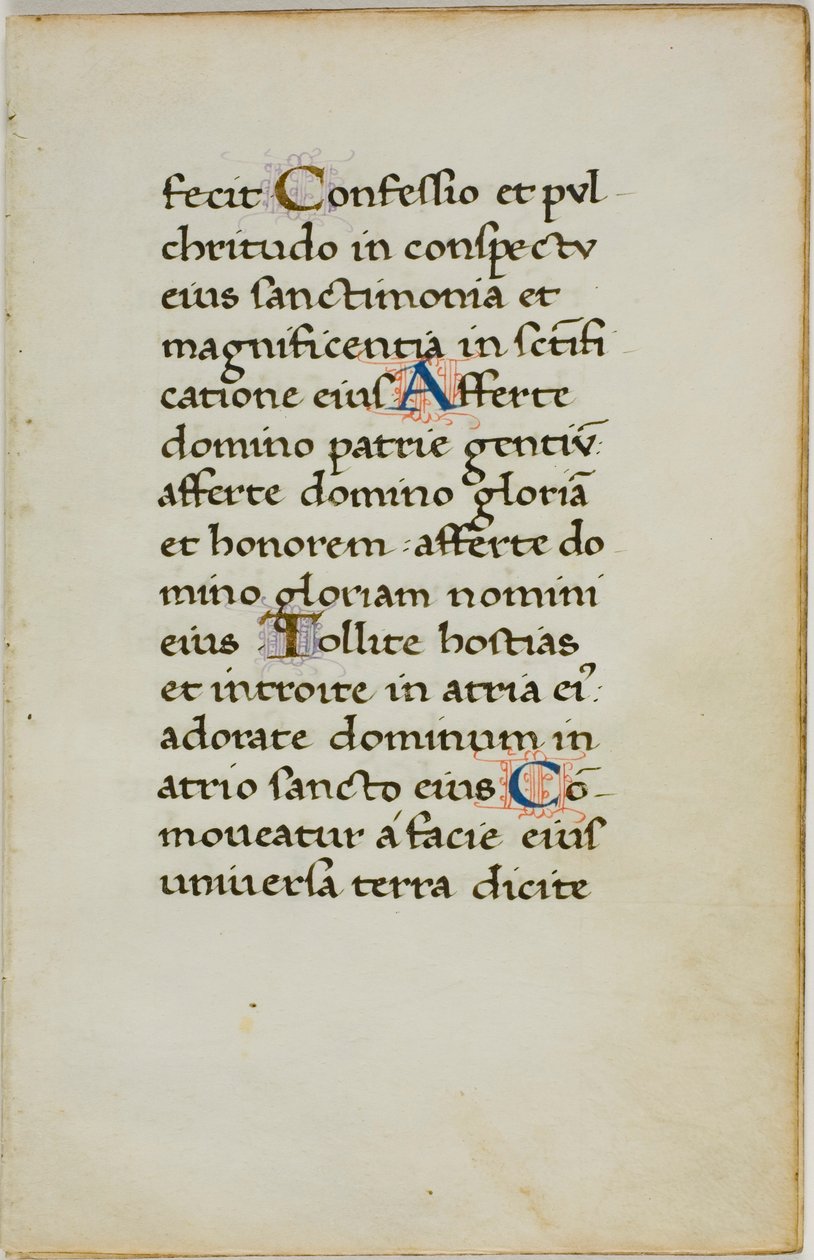 fecit Confeſſio et pvl-
chritudo in conſpectv
eius ſanctimonia et
magnificentia in ſct̄ifi-
catione eiuſ Afferte
domino patrie gentiv̄:
afferte domino gloriā
et honorem : afferte do-
mino gloriam nomini
eius Tollite hoſtias
et introite in atria eiꝰ:
adorate dominum in
atrio ſancto eius Cō-
moueatur á facie eiuſ
univerſa terra dicite